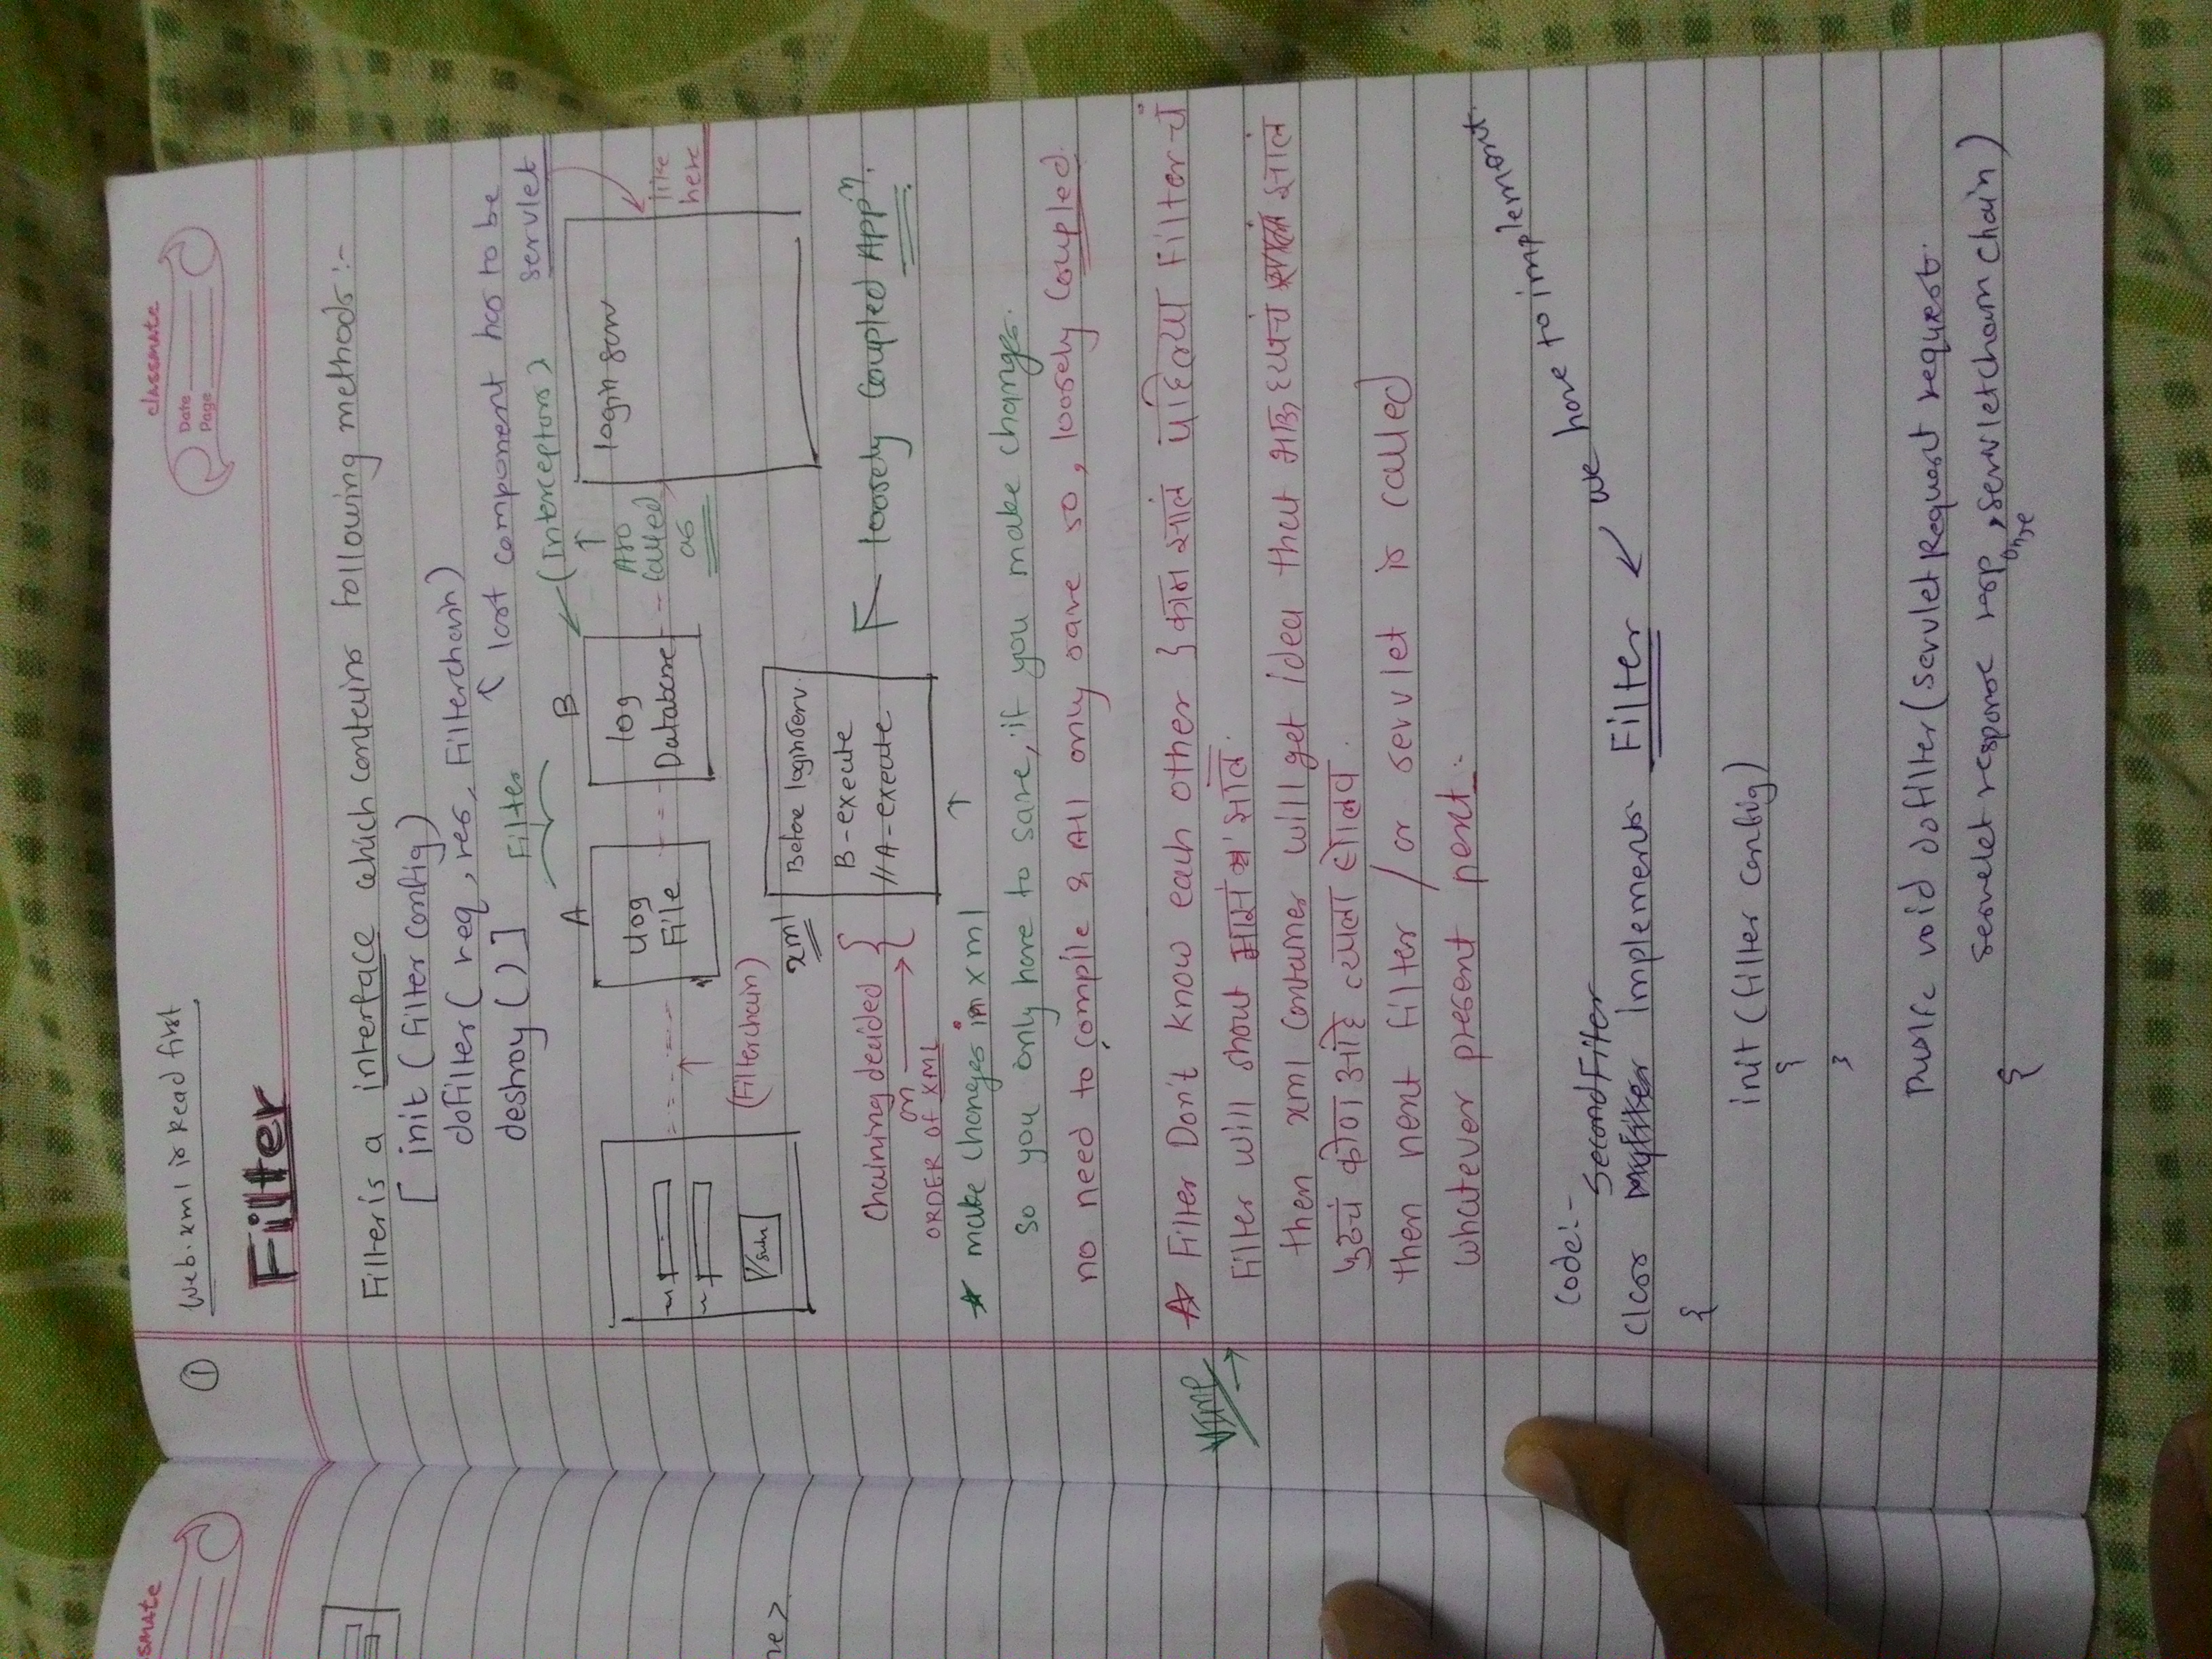 smate
classmate
Date
Page
① Web.xml is Read first
Filter
Filter is a interface which contains following methods :-
[ init ( filter config )
dofilter ( req , res , Filterchain )
destroy ( ) ]
last component has to be
servlet
Filter
A
B
( Interceptors )
Log
File
log
Database
Also
called
as
login serv
like
here
(Filterchain)
ne >
xml
Before loginserv.
B - execute
// A - execute
Chaining decided
on
ORDER of XML
loosely coupled Appⁿ.
make changes in xml
so you only have to save, if you make changes.
no need to compile & All only save so, loosely coupled.
VIMP
Filter Don't know each other } काम झालं पहिल्या Filter चं
Filter will shout माझं झालं.
then xml container will get idea that भाऊ ह्याचं झालं
पुढचं कोण आहे त्याला बोलव.
then next filter / or servlet is called
whatever present next.
Code:-
SecondFilter
class Myfilter implements Filter
we have to implement.
{
init ( filter config )
{
}
public void dofilter ( Servlet Request request.
servelet response response , servletchain chain )
{